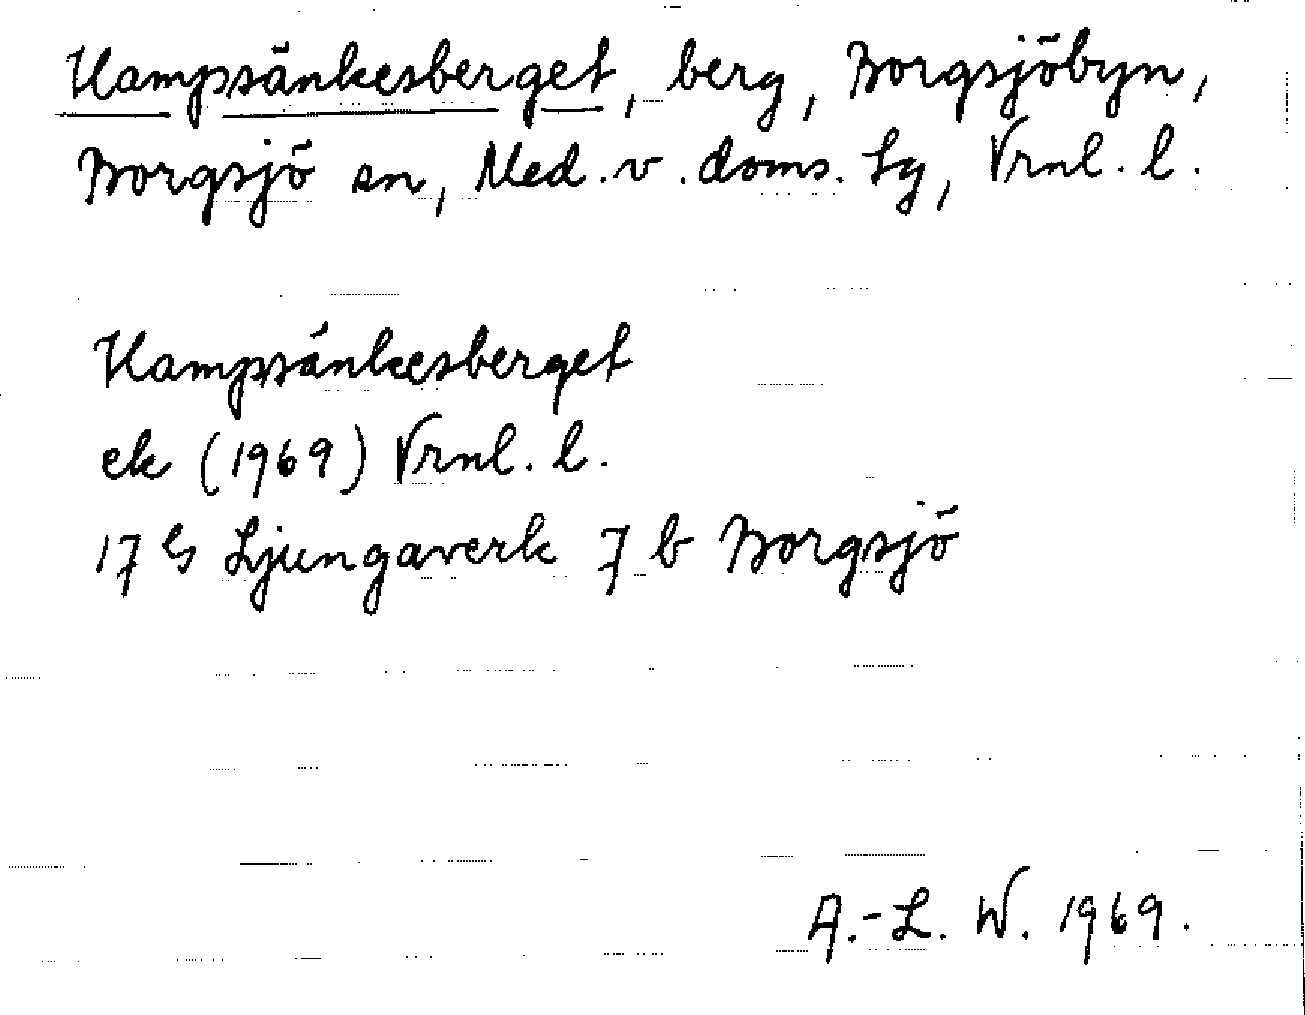 Kampsänkesberget, berg, Borgsjöbyn,
Borgsjö sn, Med. v. doms. tg, Vrnl. l.
Kampsänkesberget
ek (1969) Vrnl. l.
17 G Ljungaverk 7 b Borgsjö
A.-L. W. 1969.